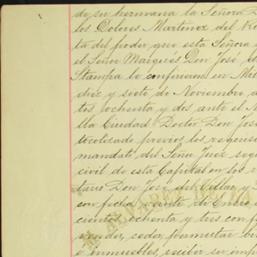 de su hermana la Señora D
los Dolores Martinez del Rio
ta del poder que esta Señora y
el Señor Marqués Don José
Stampa le confirieron en
diez y siete de Noviembre
tos ochenta y dos ante el
lla Ciudad Doctor Don José
tocolizado previos los
mandato del Señor Juez
civil de esta Capital en los
tario Don José del Villar y
con fecha veinte de Enero
cientos ochenta y tres con
vender, ceder, permutar
é inmuebles, recibir su